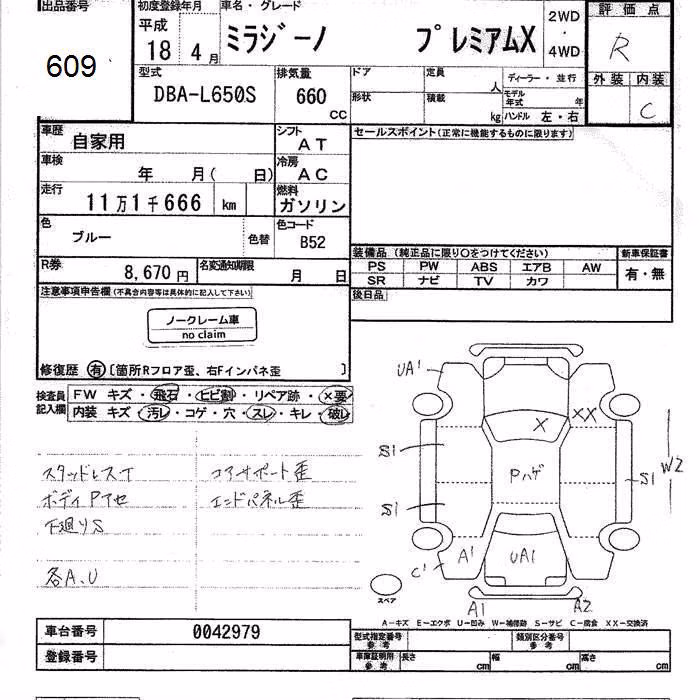 出品番号 初度登録年月 車名・グレード 評価点
609
平成
18 4月 ミラジーノ プレミアムX 2WD・4WD R
型式 排気量 ドア 定員 人 ディーラー・並行 外装 内装
DBA-L650S 660 CC 形状 積載 kg モデル年式 年 C
ハンドル 左・右
車歴 自家用 シフト AT セールスポイント(正常に機能するものに限ります)
車検 年 月( 日) 冷房 AC
走行 11万1千666 km 燃料 ガソリン
色 ブルー 色替 色コード B52
装備品 (純正品に限り○をつけてください) 新車保証書
R券 8,670円 名変通知期限 月 日
PS PW ABS エアB AW 有・無
SR ナビ TV カワ
注意事項申告欄(不具合内容等は具体的に記入して下さい) 後日品
ノークレーム車
no claim
修復歴 有 [箇所Rフロア歪、右Fインパネ歪 ]
検査員記入欄 FW キズ・飛石・ヒビ割・リペア跡・×要
内装 キズ・汚レ・コゲ・穴・スレ・キレ・破レ
UA1
X XX
S1 Pハゲ S1 W2
S1
スタッドレスT コアサポート歪
ボディPアセ エンドパネル歪
下廻りS
各A、U
A1 UA1
C1
スペア A1 A2
A-キズ E-エクボ U-凹み W-補修跡 S-サビ C-腐食 XX-交換済
車台番号 0042979 型式指定番号参考 類別区分番号参考
登録番号 車庫証明用参考 長さ cm 幅 cm 高さ cm